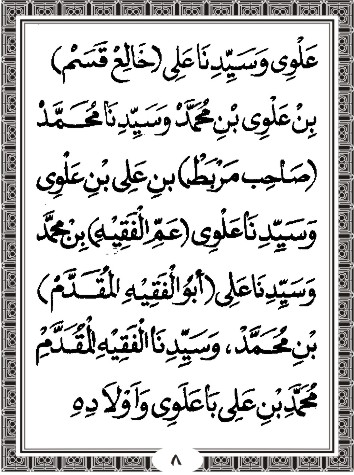 عَلْوِى وَسَيِّدِنَا عَلِى (خَالِعْ قَسَمْ)
بِنْ عَلْوِى بْنِ مُحَمَّدْ وَسَيِّدِنَا مُحَمَّدْ
(صَاحِب مَرْبَطْ) بنِ عَلِى بْنِ عَلْوِى
وَسَيِّدِنَا عَلْوِى (عَمِّ الْفَقِيهِ) بِنْ مُحَمَّد
وَسَيِّدِنَا عَلِى (أَبُو الْفَقِيهِ الْمُقَدَّمْ)
بْنِ مُحَمَّدْ، وَسَيِّدِنَا الْفَقِيهِ الْمُقَدَّمِ
مُحَمَّدِ بْنِ عَلِى بَاعَلَوِى وَأَوْلَادِهِ
٨